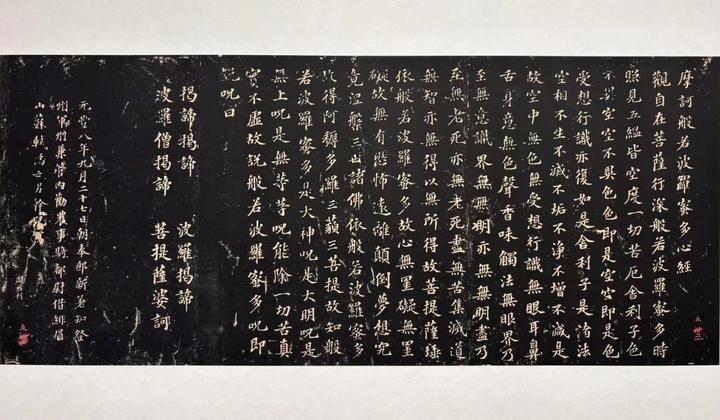 摩訶般若波羅蜜多心經
觀自在菩薩行深般若波羅蜜多時
照見五蘊皆空度一切苦厄舍利子色
不異空空不異色色即是空空即是色
受想行識亦復如是舍利子是諸法
空相不生不滅不垢不淨不增不減是
故空中無色無受想行識無眼耳鼻
舌身意無色聲香味觸法無眼界乃
至無意識界無無明亦無無明盡乃
至無老死亦無老死盡無苦集滅道
無智亦無得以無所得故菩提薩埵
依般若波羅蜜多故心無罣礙無罣
礙故無有恐怖遠離顛倒夢想究
竟涅槃三世諸佛依般若波羅蜜多
故得阿耨多羅三藐三菩提故知般
若波羅蜜多是大神呪是大明呪是
無上呪是無等等呪能除一切苦真
實不虛故說般若波羅蜜多呪即
說呪曰
揭諦揭諦 波羅揭諦
波羅僧揭諦 菩提薩婆訶
元豐八年九月二十七日朝奉郎新差知登
州軍州兼管內勸農事騎都尉借緋眉
山蘇軾為亡